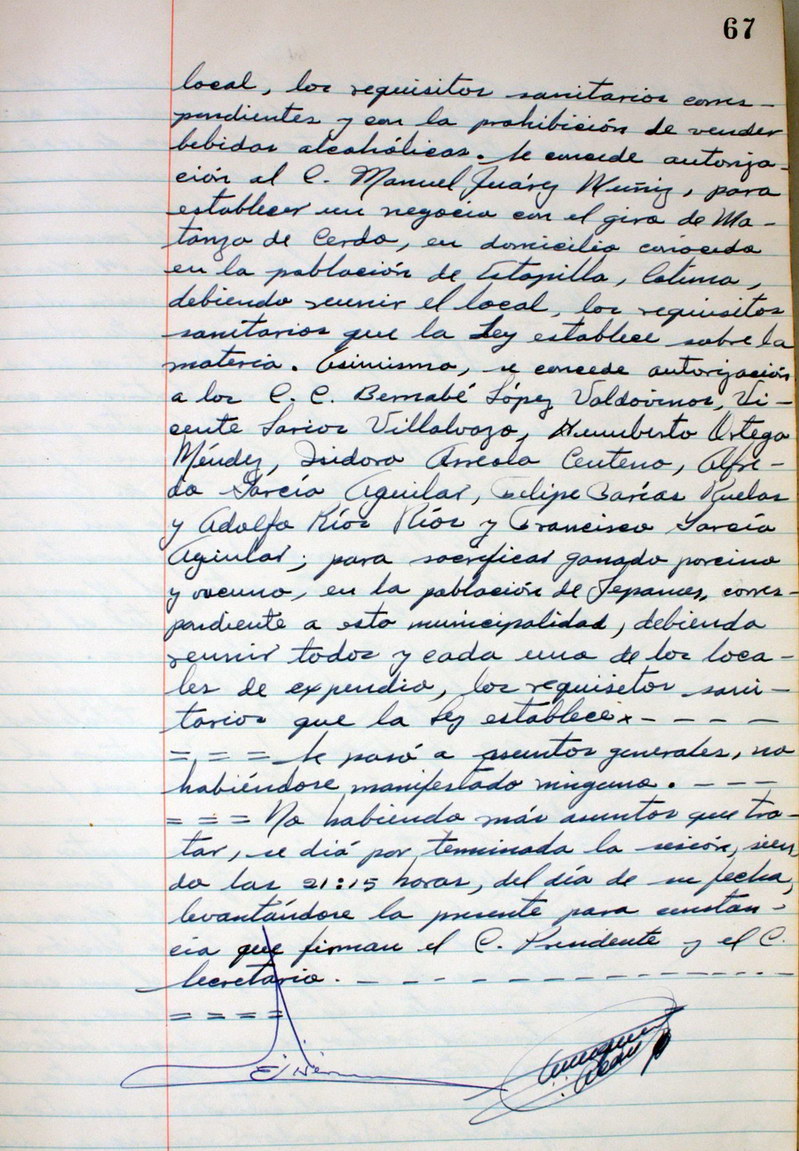 67
local, los requisitos sanitarios corres-
pondientes y con la prohibición de vender
bebidas alcohólicas. Se concede autoriza-
ción al C. Manuel Juárez Muñiz, para
establecer un negocio con el giro de Ma-
tanza de Cerdo, en domicilio conocido
en la población de Estapilla, Colima,
debiendo reunir el local, los requisitos
sanitarios que la Ley establece sobre la
materia. Asimismo, se concede autorización
a los C. C. Bernabé López Valdovinos, Vi-
cente Larios Villalvazo, Humberto Ortega
Méndez, Isidoro Arreola Centeno, Alfre-
do García Aguilar, Felipe Barías Ruelas
y Adolfo Ríos Ríos y Francisco García
Aguilar; para sacrificar ganado porcino
y vacuno, en la población de Tepames, corres-
pondiente a esta municipalidad, debiendo
reunir todos y cada uno de los loca-
les de expendio, los requisitos sani-
tarios que la Ley establece x - - - -
= = = Se pasó a asuntos generales, no
habiéndose manifestado ninguno. - - -
= = = No habiendo más asuntos que tra-
tar, se dió por terminada la sesión, sien
do las 21:15 horas, del día de su fecha,
levantándose la presente para constan-
cia que firman el C. Presidente y el C.
Secretario. - - - - - - - - - - - - - -
= = = =